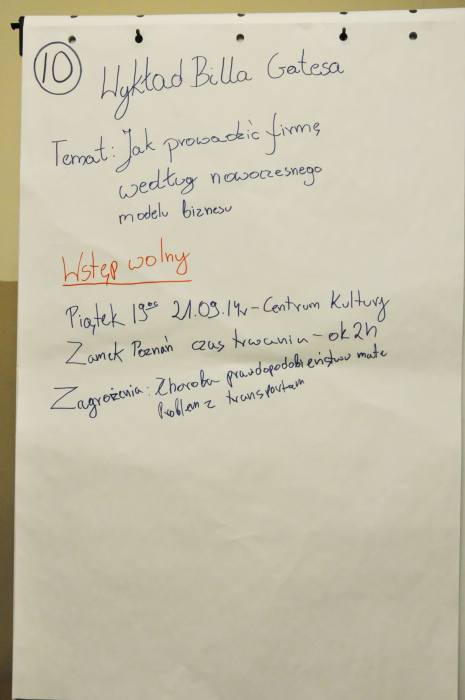 10
Wykład Billa Gatesa
Temat: Jak prowadzić firmę
według nowoczesnego
modelu biznesu
Wstęp wolny
Piątek 19⁰⁰ 21.09.14r - Centrum Kultury
Zamek Poznań czas trwania - ok 2h
Zagrożenia: Choroba prawdopodobieństwo małe
Problem z transportem